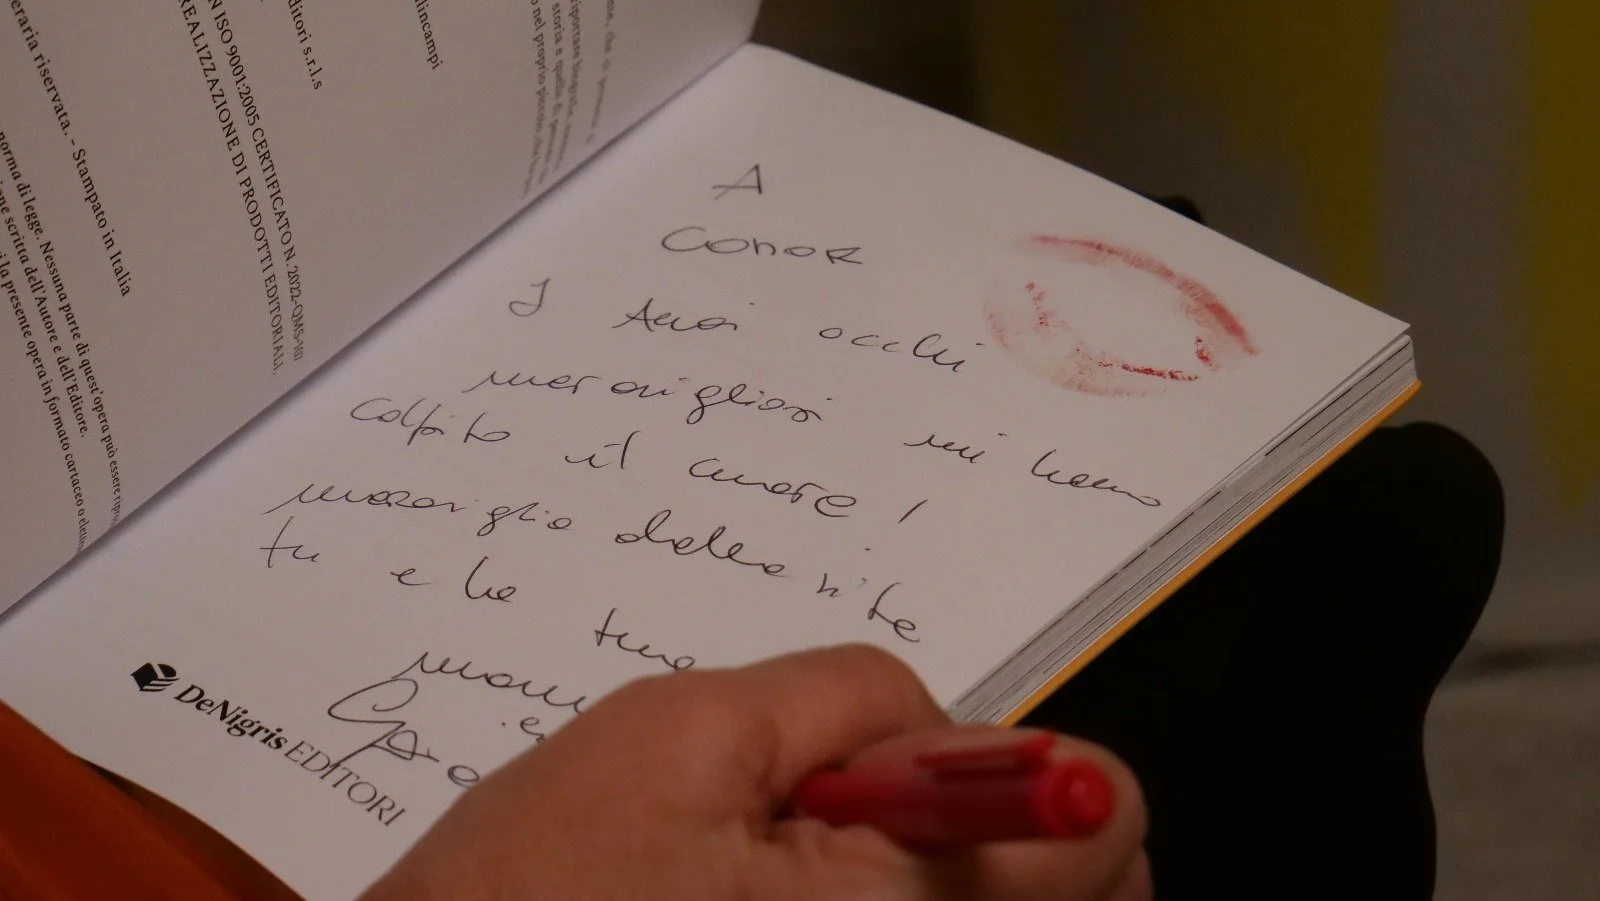 riportare biografie
storia e quelle di
nel proprio piccolo che
llincampi
ditori s.r.l.s
N ISO 9001:2005 CERTIFICATO N. 2022-QMS-107
REALIZZAZIONE DI PRODOTTI EDITORIALI.
eraria riservata. - Stampato in Italia
norma di legge. Nessuna parte di quest'opera può essere ripro
ione scritta dell'Autore e dell'Editore.
la presente opera in formato cartaceo o elettro
A
CONOR
I tuoi occhi
meravigliosi mi hanno
colpito il cuore!
meraviglia della vita
tu e la tua
mam
DeNigris EDITORI